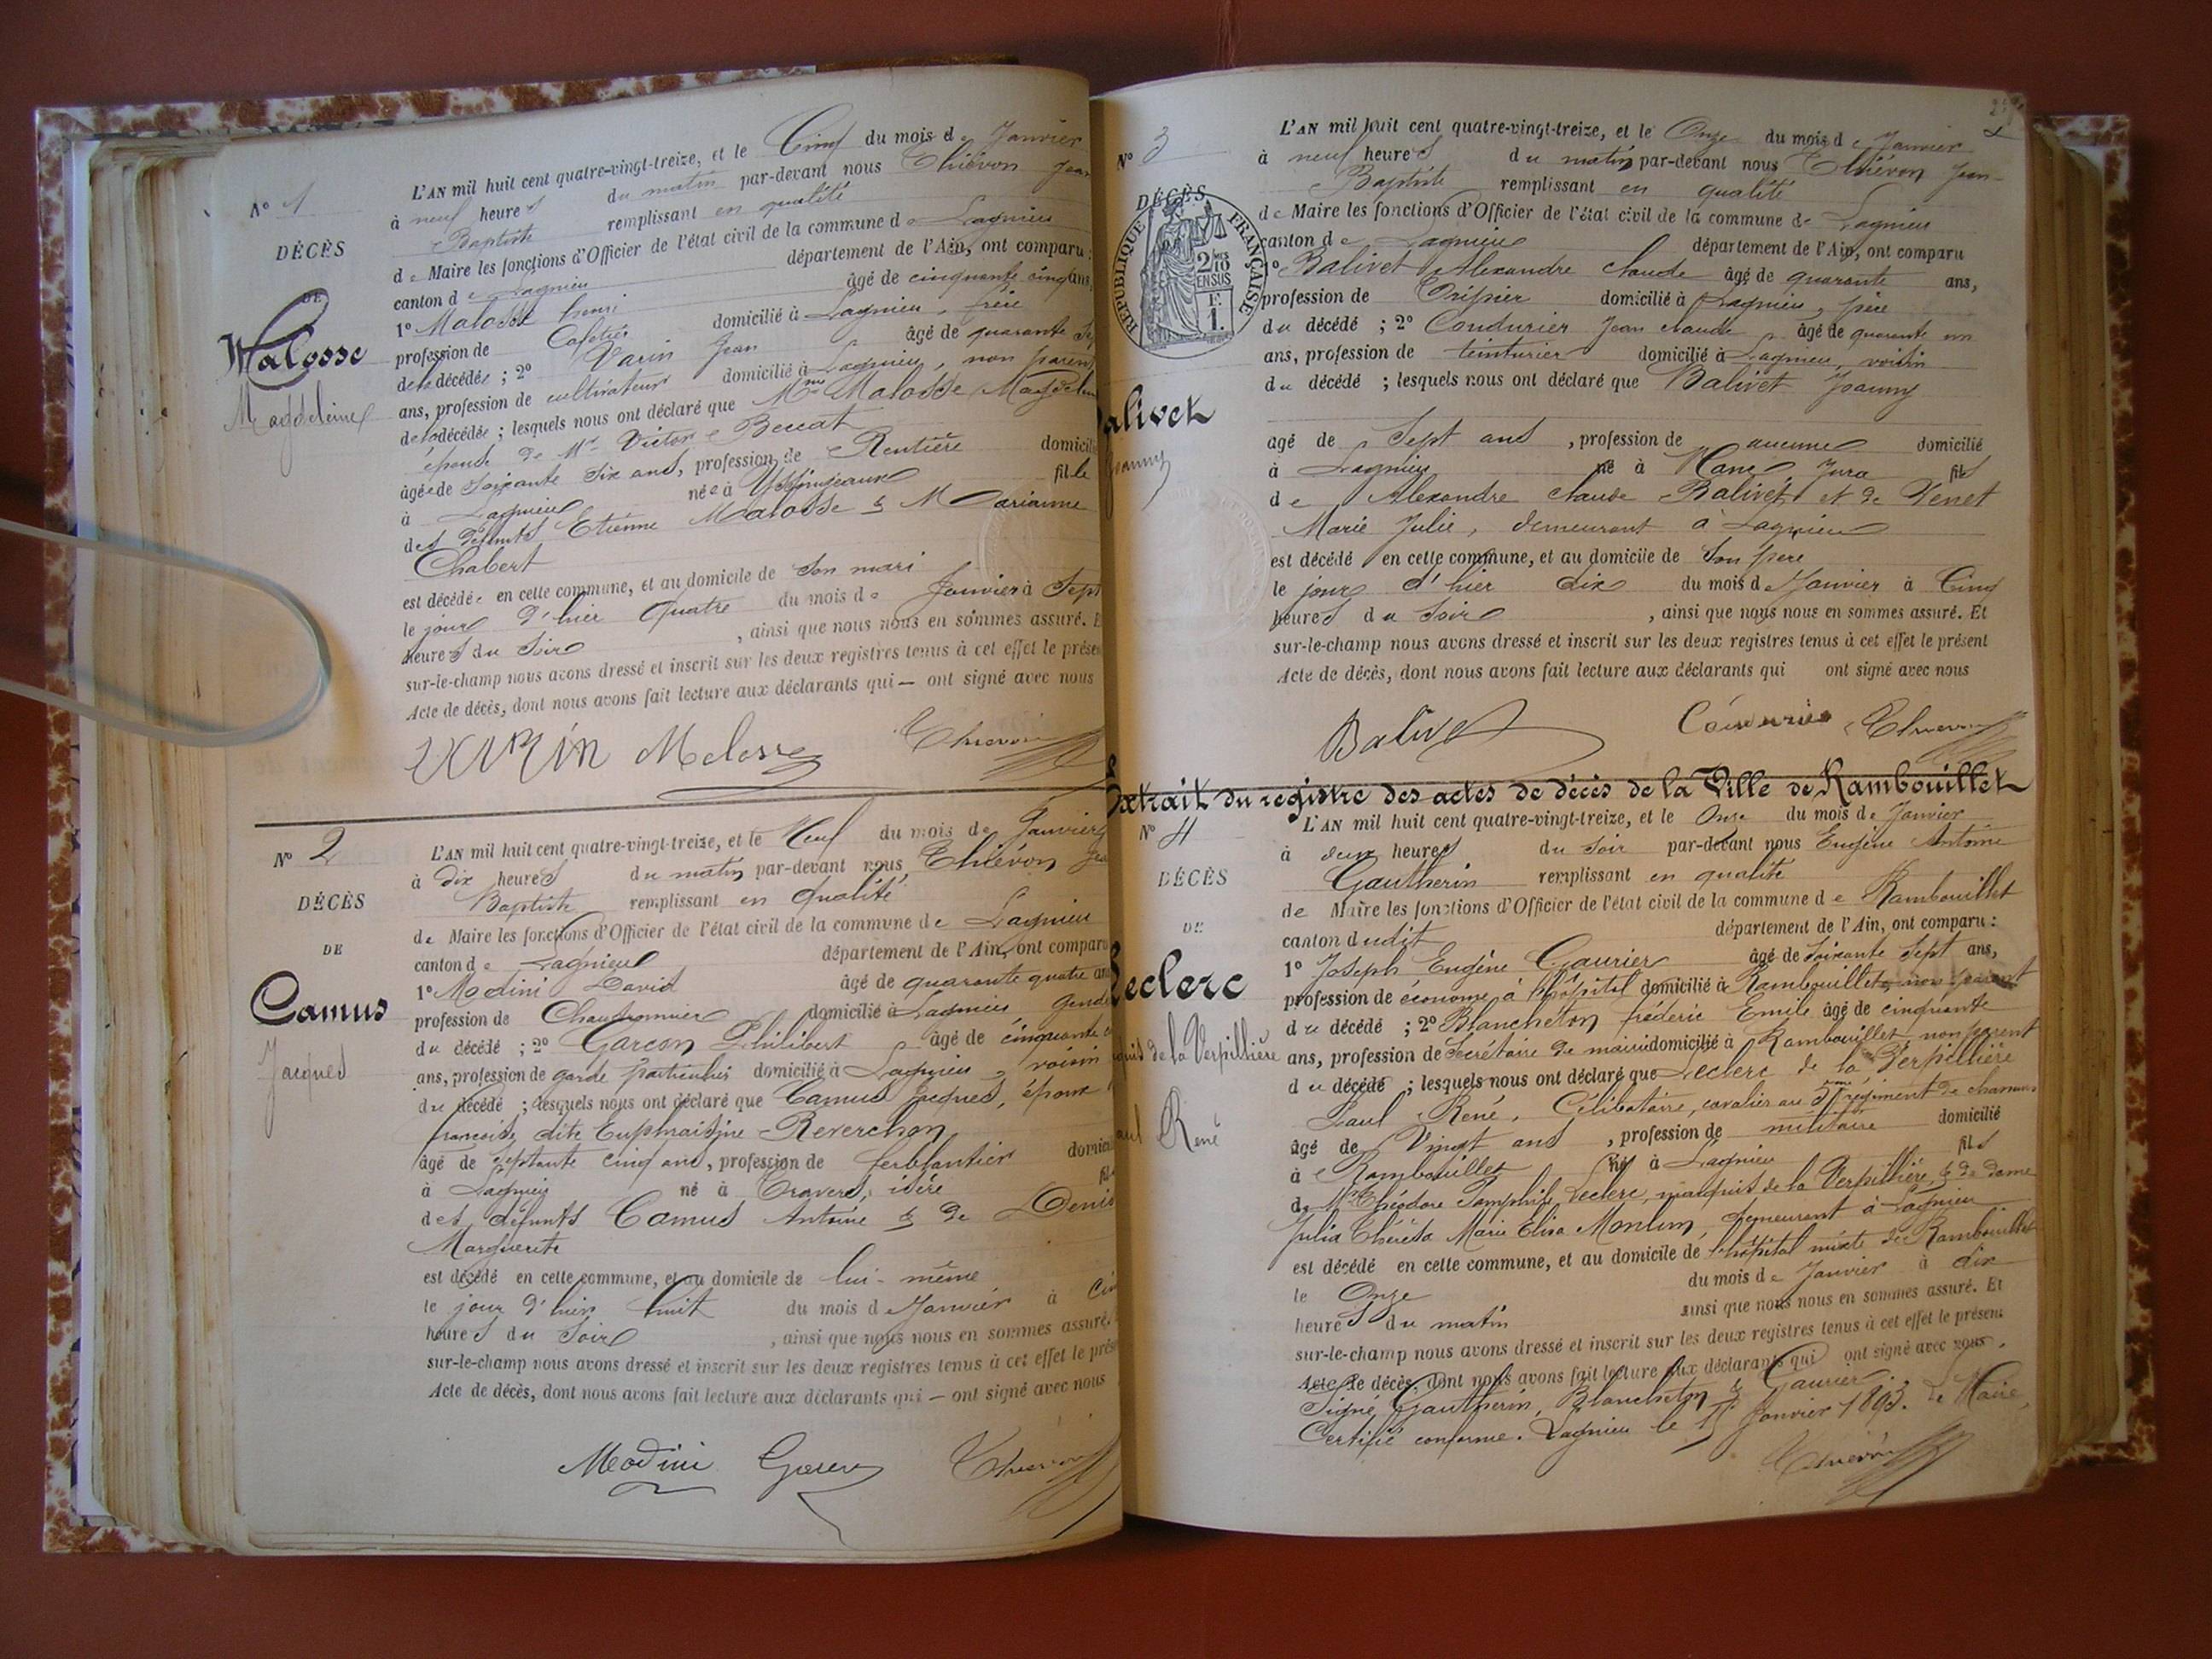 N° 1
DÉCÈS
DE
Malosse
Magdeleine
L'AN mil huit cent quatre-vingt-treize, et le Cinq du mois de Janvier
à neuf heures du matin par-devant nous Thiévon Jean
Baptiste remplissant en qualité
de Maire les fonctions d'Officier de l'état civil de la commune de Lagnieu
canton de Lagnieu département de l'Ain, ont comparu :
1° Malosse henri âgé de cinquante cinq ans,
profession de Cafetier domicilié à Lagnieu, frère
de la décédée ; 2° Varin Jean âgé de quarante
ans, profession de cultivateur domicilié à Lagnieu, non parent
de la décédée ; lesquels nous ont déclaré que Mme Malosse Magdeleine
épouse de Mr Victor Beccat
âgée de soixante six ans, profession de Rentière domicilié
à Lagnieu née à Yssingeaux fille
des défunts Etienne Malosse & Marianne
Chabert
est décédée en cette commune, et au domicile de son mari
le jour d'hier quatre du mois de Janvier à Sept
heures du Soir , ainsi que nous nous en sommes assuré. E
sur-le-champ nous avons dressé et inscrit sur les deux registres tenus à cet effet le prése
Acte de décès, dont nous avons fait lecture aux déclarants qui — ont signé avec nous
VARIN Malosse Thievon
N° 2
DÉCÈS
DE
Camus
Jacques
L'AN mil huit cent quatre-vingt-treize, et le Neuf du mois de Janvier
à dix heures du matin par-devant nous Thiévon Jea
Baptiste remplissant en qualité
de Maire les fonctions d'Officier de l'état civil de la commune de Lagnieu
canton de Lagnieu département de l'Ain, ont comparu
1° Modini David âgé de quarante quatre an
profession de Chaudronnier domicilié à Lagnieu, gendre
du décédé ; 2° Garcon Philibert âgé de cinquante
ans, profession de garde particulier domicilié à Lagnieu, voisin
du décédé ; lesquels nous ont déclaré que Camus Jacques, époux
françoise, dite Euphraisine Reverchon
âgé de septante cinq ans, profession de ferblantier domicil
à Lagnieu né à Travers, isère fil
des défunts Camus Antoine & de Denis
Marguerite
est décédé en cette commune, et au domicile de lui-même
le jour d'hier huit du mois de Janvier à Cin
heures du Soir , ainsi que nous nous en sommes assuré.
sur-le-champ nous avons dressé et inscrit sur les deux registres tenus à cet effet le prés
Acte de décès, dont nous avons fait lecture aux déclarants qui — ont signé avec nous
Modini Garcon Thievon
N° 3
DÉCÈS
RÉPUBLIQUE FRANÇAISE
2/10 EN SUS
alivet
Joanny
L'AN mil huit cent quatre-vingt-treize, et le Onze du mois de Janvier
à neuf heures du matin par-devant nous Thiévon Jean-
Baptiste remplissant en qualité
de Maire les fonctions d'Officier de l'état civil de la commune de Lagnieu
canton de Lagnieu département de l'Ain, ont comparu
1° Balivet Alexandre Claude âgé de quarante ans,
profession de Fripier domicilié à Lagnieu, père
du décédé ; 2° Condurier Jean claude âgé de quarante un
ans, profession de teinturier domicilié à Lagnieu, voisin
du décédé ; lesquels nous ont déclaré que Balivet Joanny
agé de Sept ans , profession de aucune domicilié
à Lagnieu né à Nanc, Jura fils
de Alexandre claude Balivet, et de Venet
Marie Julie, demeurant à Lagnieu
est décédé en cette commune, et au domicile de son père
le jour d'hier dix du mois de Janvier à Cinq
heures du Soir , ainsi que nous nous en sommes assuré. Et
sur-le-champ nous avons dressé et inscrit sur les deux registres tenus à cet effet le présent
Acte de décès, dont nous avons fait lecture aux déclarants qui ont signé avec nous
Balivet Condurier Thievon
Extrait du registre des actes de décès de la Ville de Rambouillet
N° 4
DÉCÈS
DE
Leclerc
quis de la Verpillière
aul René
L'AN mil huit cent quatre-vingt-treize, et le Onze du mois de Janvier
à deux heures du soir par-devant nous Eugène Antoine
Gautherin remplissant en qualité
de Maire les fonctions d'Officier de l'état civil de la commune de Rambouillet
canton dudit département de l'Ain, ont comparu :
1° Joseph Eugène Gaurier âgé de Soixante Sept ans,
profession de économe à l'hôpital domicilié à Rambouillet, non parent
du décédé ; 2° Blancheton frédéric Emile âgé de cinquante
ans, profession de Secrétaire de mairie domicilié à Rambouillet, non parent
du décédé ; lesquels nous ont déclaré que Leclerc de la Verpillière
Paul René, Célibataire, cavalier au régiment de chasseurs
âgé de Vingt ans , profession de militaire domicilié
à Rambouillet né à Lagnieu fils
de Mr Théodore Pamphile Leclerc, marquis de la Verpillière, & de dame
Julia Thérésa Marie Elisa Monlun, demeurant à Lagnieu
est décédé en cette commune, et au domicile de l'hôpital mixte de Rambouillet
le Onze du mois de Janvier à dix
heures du matin ainsi que nous nous en sommes assuré. Et
sur-le-champ nous avons dressé et inscrit sur les deux registres tenus à cet effet le présent
Acte de décès, dont nous avons fait lecture aux déclarants qui ont signé avec nous.
Signé Gautherin, Blancheton & Gaurier.
Certifié conforme. Lagnieu le 15 Janvier 1893. Le Maire,
Thiévon